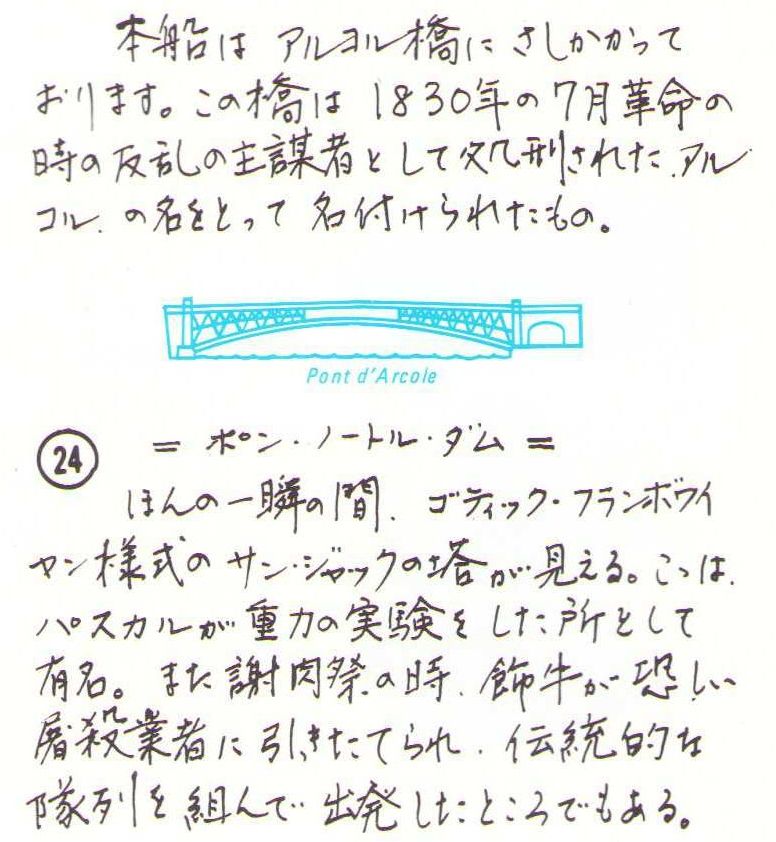 本船は アルヨル橋に さしかかって
おります。この橋は 1830年の 7月革命の
時の反乱の主謀者として処刑された、アル
コル、の名をとって 名付けられたもの。
Pont d'Arcole
24 = ポン・ノートル・ダム =
ほんの一瞬の間、ゴティック・フランボワイ
ヤン様式の サン・ジャックの塔が見える。こゝは、
パスカルが重力の実験をした所として
有名。また謝肉祭の時、飾牛が恐しい
屠殺業者に引きたてられ、伝統的な
隊列を組んで出発したところでもある。